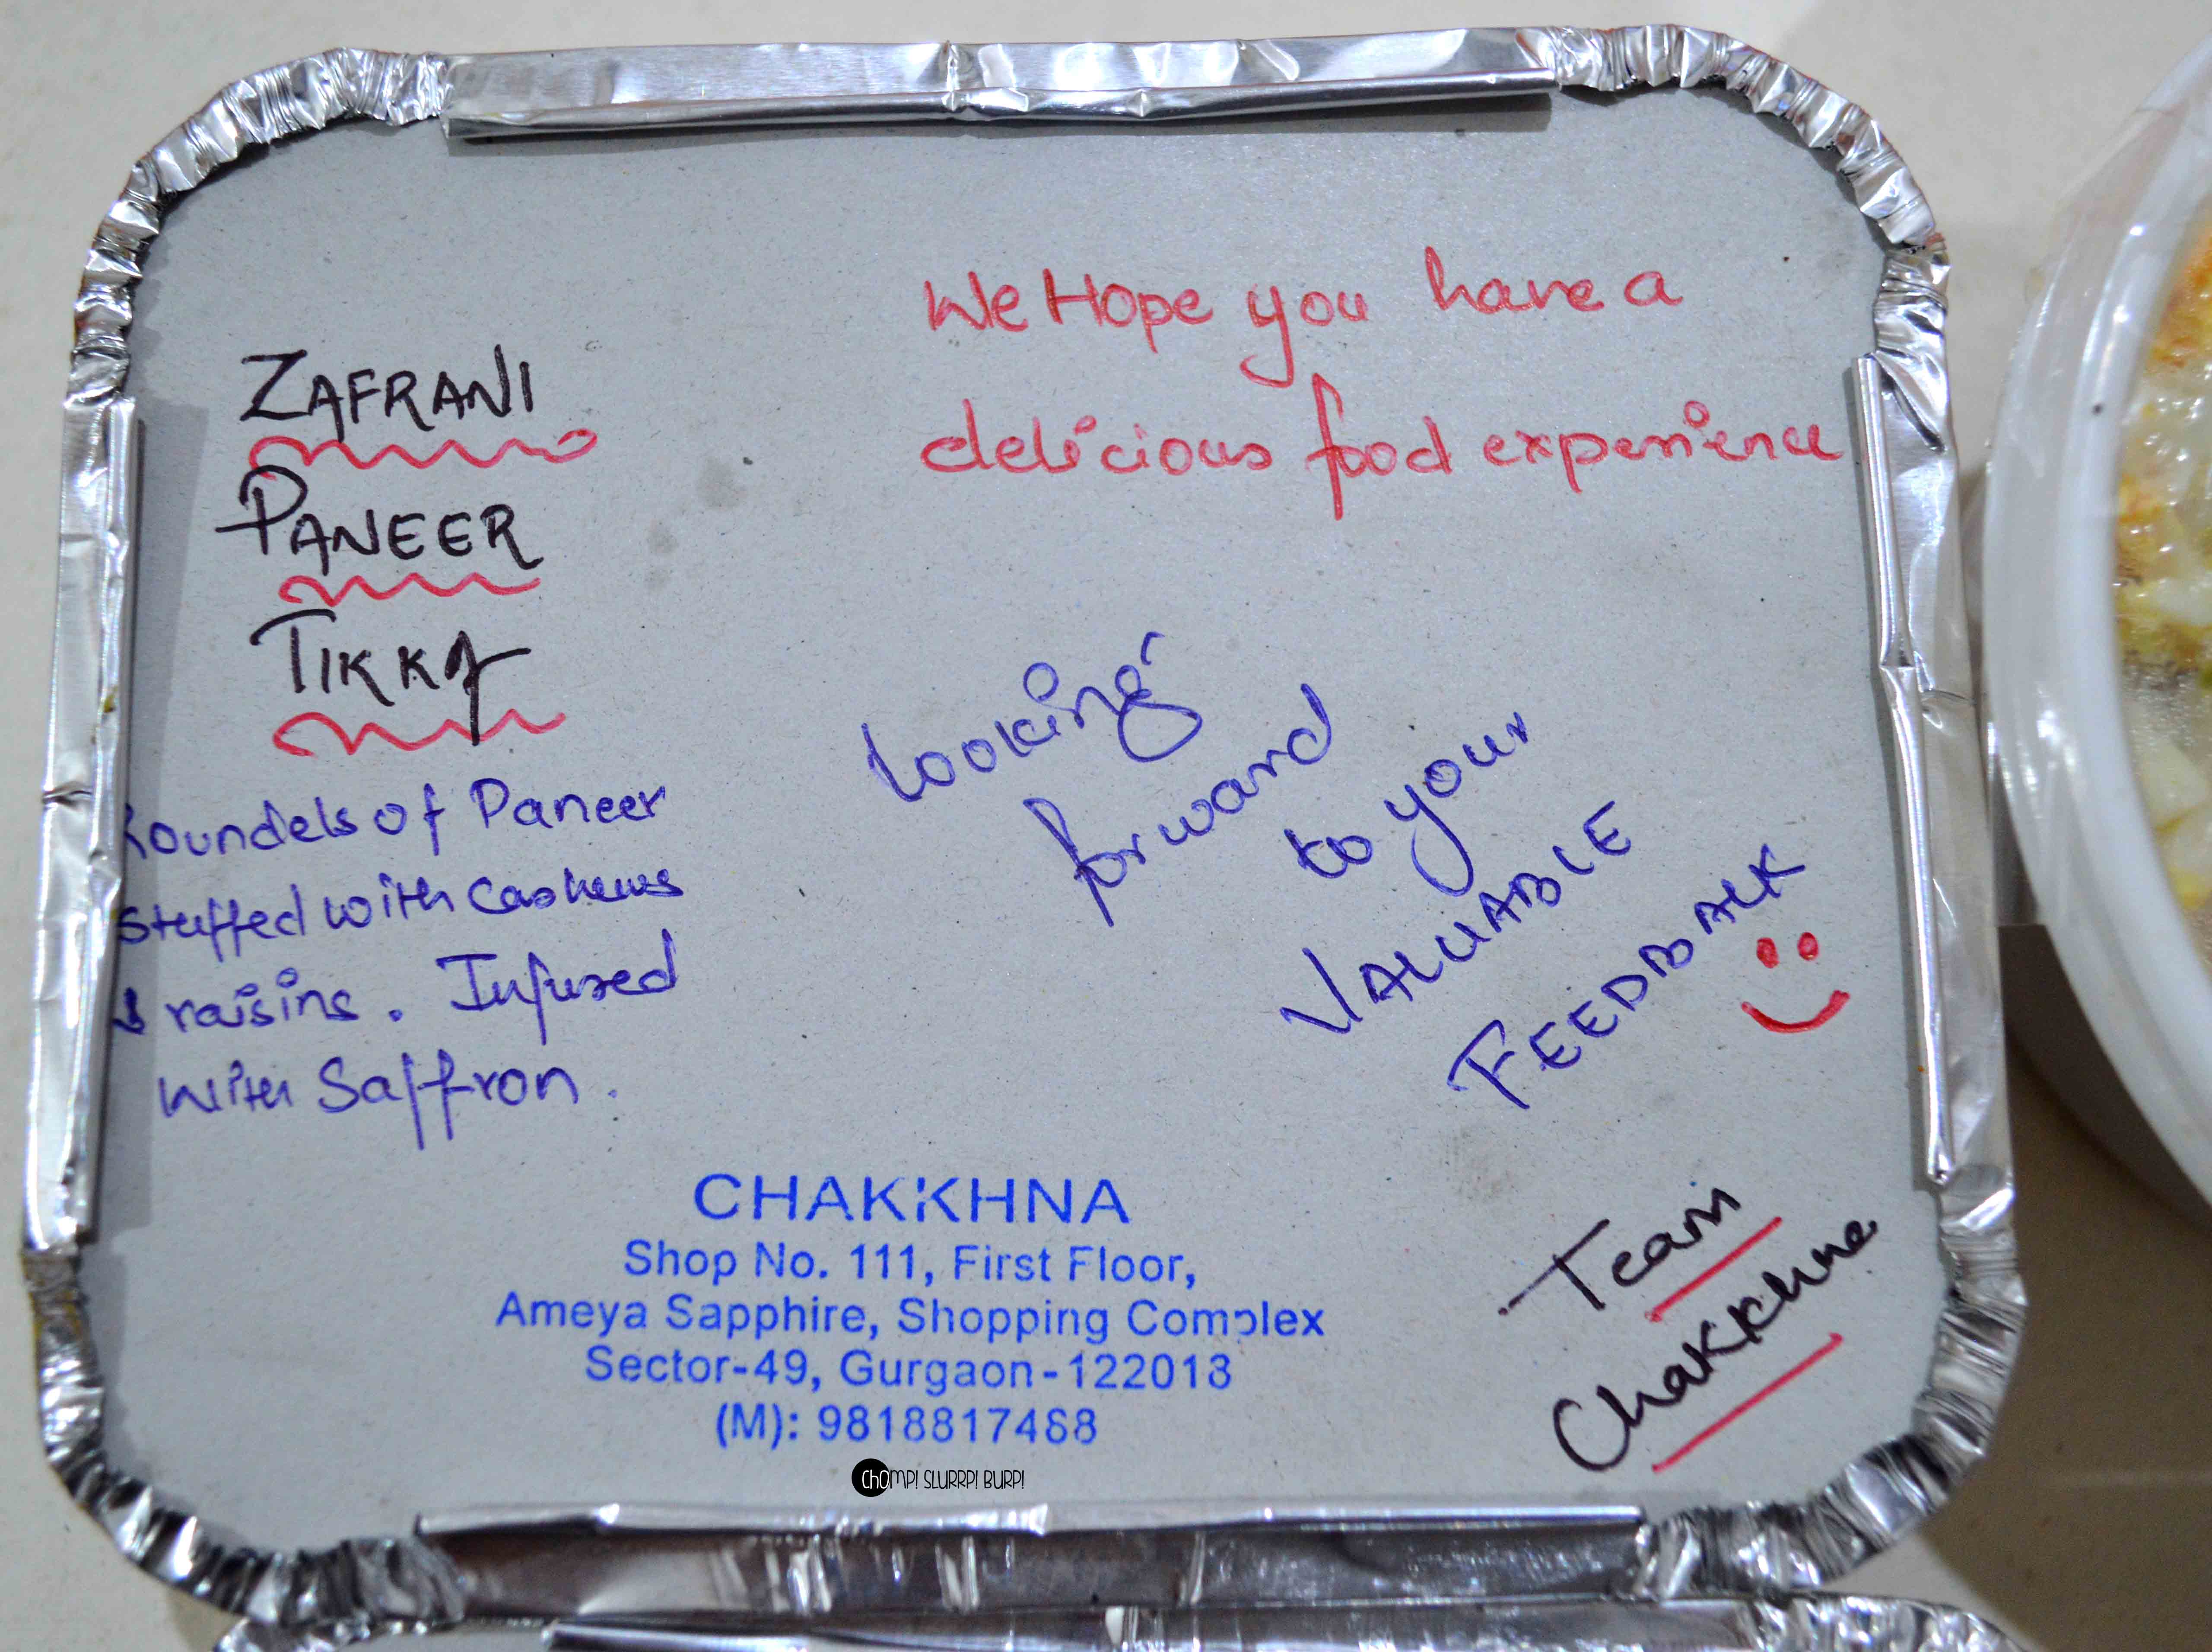 ZAFRANI
PANEER
TIKKA
Roundels of Paneer
stuffed with Cashews
& raisins. Infused
with Saffron.
We Hope you have a
delicious food experience
Looking
forward
to your
VALUABLE
FEEDBACK
Team
Chakkhna
CHAKKHNA
Shop No. 111, First Floor,
Ameya Sapphire, Shopping Complex
Sector-49, Gurgaon-122018
(M): 9818817468
CHOMP! SLURRP! BURP!